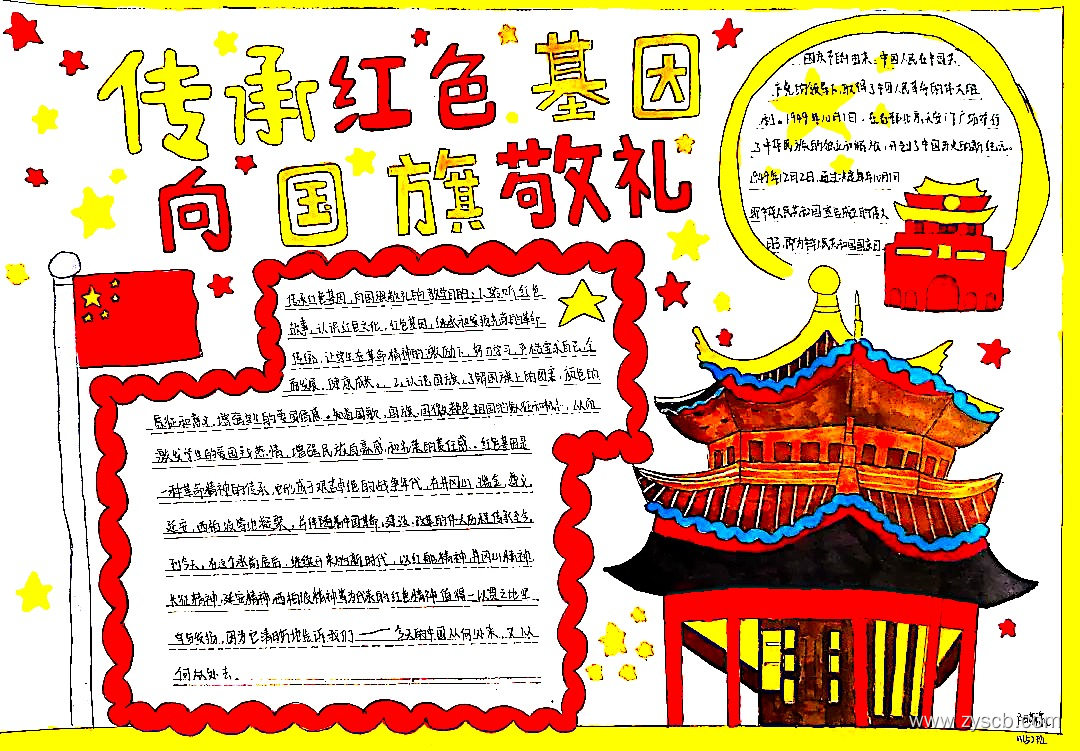 传承红色基因
向国旗敬礼
国庆节的由来：中国人民在中国共
产党的领导下，取得了中国人民革命的伟大胜
利。1949年10月1日，在首都北京天安门广场举行
了中华民族的独立和解放，开创了中国历史的新纪元。
1949年12月2日，通过决定每年10月1日
即中华人民共和国宣告成立的伟大
日子，为中华人民共和国国庆日
传承红色基因，向国旗敬礼的教学目的：1.聆听红色
故事，认识红色文化，红色基因，继承和发扬先辈的革命
传统，让学生在革命精神的激励下，努力学习，严格要求自己，全
面发展，健康成长。2.认识国旗，了解国旗上的图案，颜色的
象征和意义，增强学生的爱国情感。知道国歌、国旗、国徽都是祖国的象征和标志，从而
激发学生的爱国主义热情，增强民族自豪感和光荣的责任感。红色基因是
一种革命精神的传承，它孕育于艰苦卓绝的战争年代，在井冈山、瑞金、遵义、
延安、西柏坡等地凝聚，并伴随着中国革命、建设、改革的伟大历程传承至今。
到今天，在这个承前启后、继续开来的新时代，以红船精神、井冈山精神、
长征精神、延安精神、西柏坡精神等为代表的红色精神值得一以贯之地坚
守与发扬，因为它清晰地告诉我们——今天的中国从何处来，又从
何从处去。
www.zyscb.com